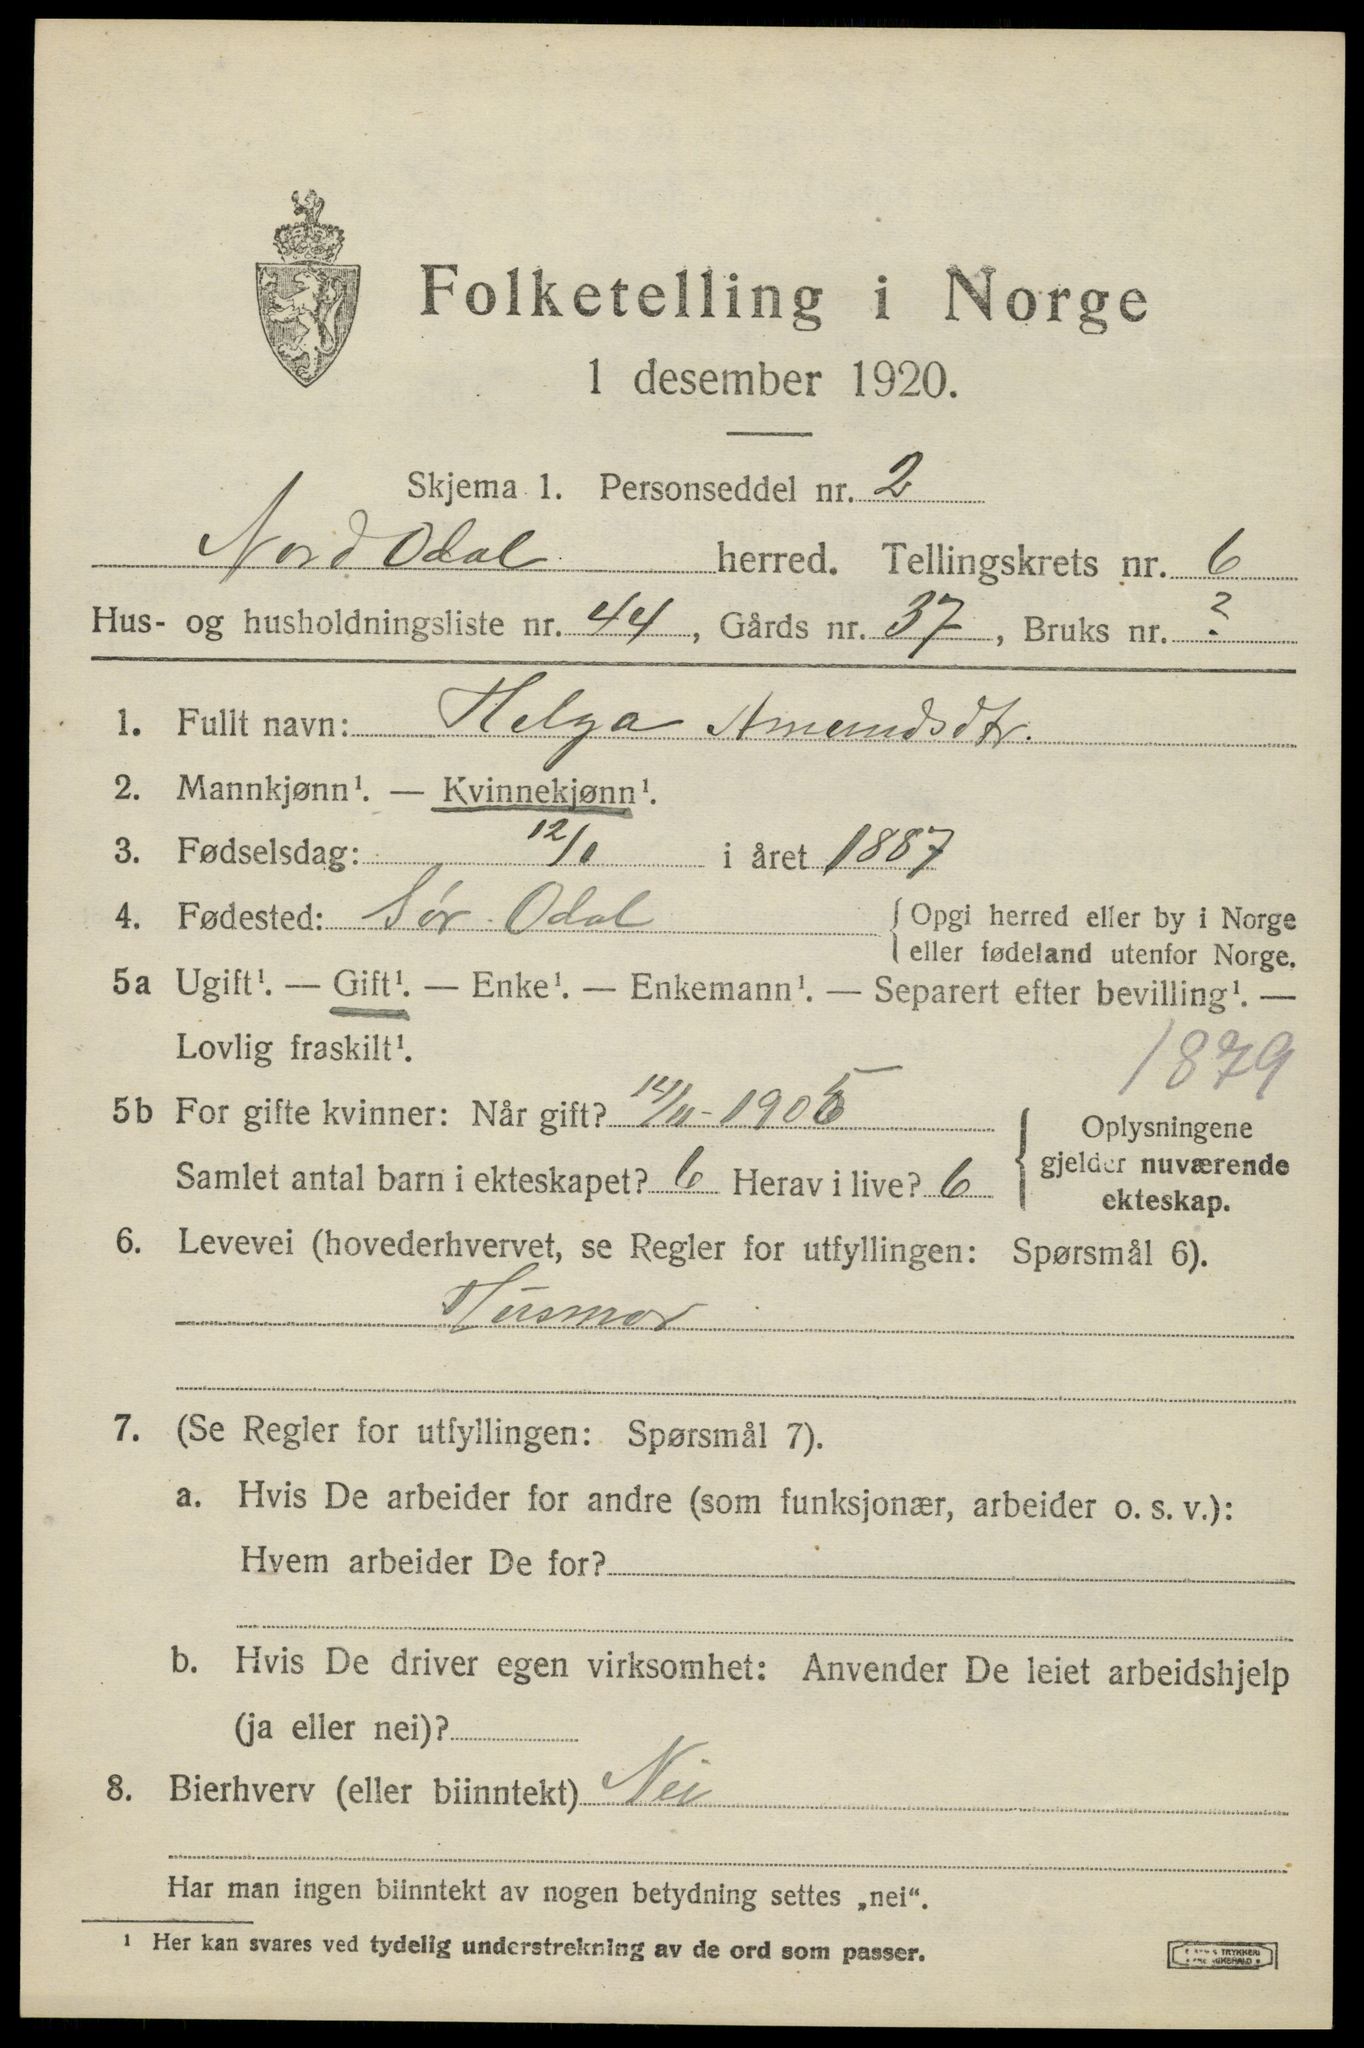 Folketelling i Norge
1 desember 1920.
Skjema 1. Personseddel nr. 2
Nord Odal herred. Tellingskrets nr. 6
Hus- og husholdningsliste nr. 44, Gårds nr. 37, Bruks nr. ?
1. Fullt navn: Helga Amundsdtr.
2. Mannkjønn¹. — Kvinnekjønn¹.
3. Fødselsdag: 12/1 i året 1887
4. Fødested: Sør-Odal
{Opgi herred eller by i Norge
eller fødeland utenfor Norge.
5a Ugift¹. — Gift¹. — Enke¹. — Enkemann¹. — Separert efter bevilling¹. —
Lovlig fraskilt¹.
1879
5b For gifte kvinner: Når gift? 12/11-1905
Samlet antal barn i ekteskapet? 6 Herav i live? 6
{Oplysningene
gjelder nuværende
ekteskap.
6. Levevei (hovederhvervet, se Regler for utfyllingen: Spørsmål 6).
Husmor
7. (Se Regler for utfyllingen: Spørsmål 7).
a. Hvis De arbeider for andre (som funksjonær, arbeider o. s. v.):
Hvem arbeider De for?
b. Hvis De driver egen virksomhet: Anvender De leiet arbeidshjelp
(ja eller nei)?
8. Bierhverv (eller biinntekt) Nei
Har man ingen biinntekt av nogen betydning settes „nei“.
¹ Her kan svares ved tydelig understrekning av de ord som passer.